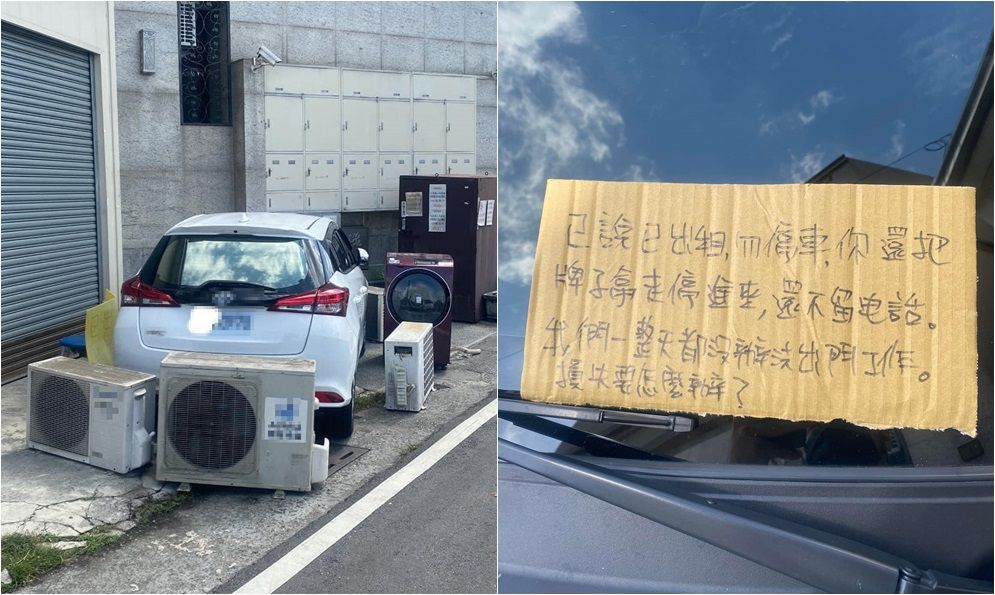 已說已出租,勿停車,你還把
牌子拿走停進來,還不留電話。
我們一整天都沒辦法出門工作。
損失要怎麼辦?